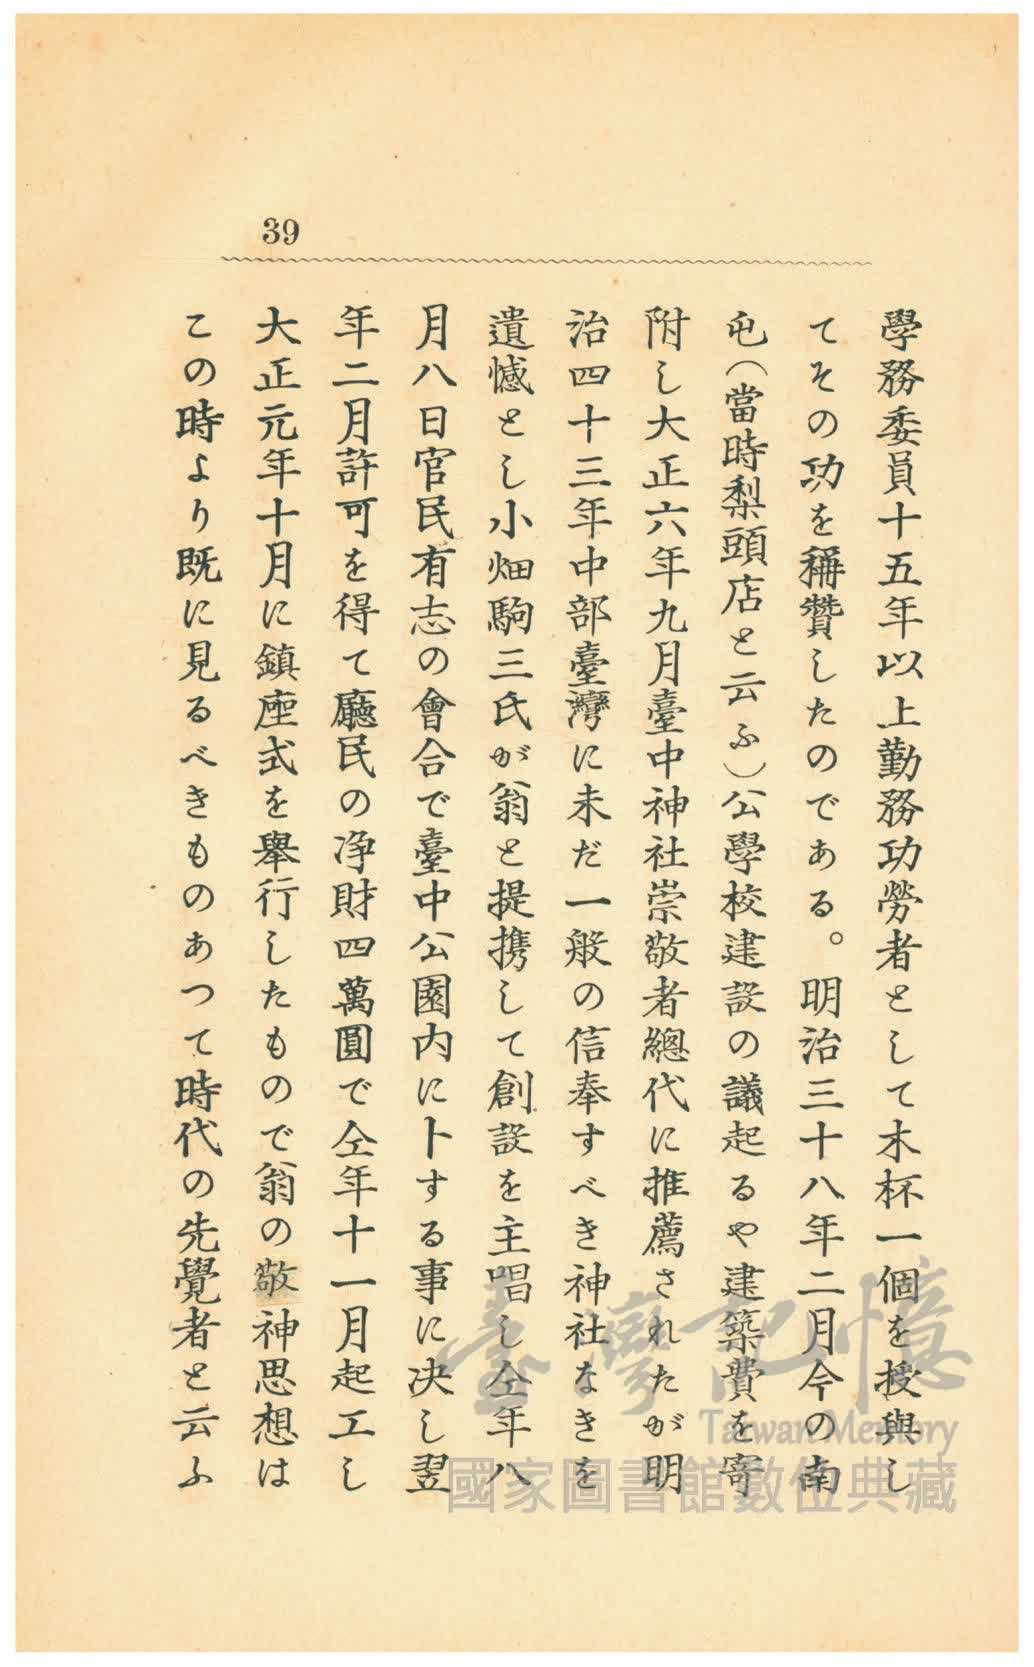 39
學務委員十五年以上勤務功勞者として木杯一個を授與し
てその功を稱贊したのである。明治三十八年二月今の南
屯(當時梨頭店と云ふ)公學校建設の議起るや建築費を寄
附し大正六年九月臺中神社崇敬者總代に推薦されたが明
治四十三年中部臺灣に未だ一般の信奉すべき神社なきを
遺憾とし小畑駒三氏が翁と提携して創設を主唱し仝年八
月八日官民有志の會合で臺中公園内に卜する事に決し翌
年二月許可を得て廳民の淨財四萬圓で仝年十一月起工し
大正元年十月に鎭座式を舉行したもので翁の敬神思想は
この時より既に見るべきものあつて時代の先覺者と云ふ
臺灣記憶
Taiwan Memory
國家圖書館數位典藏